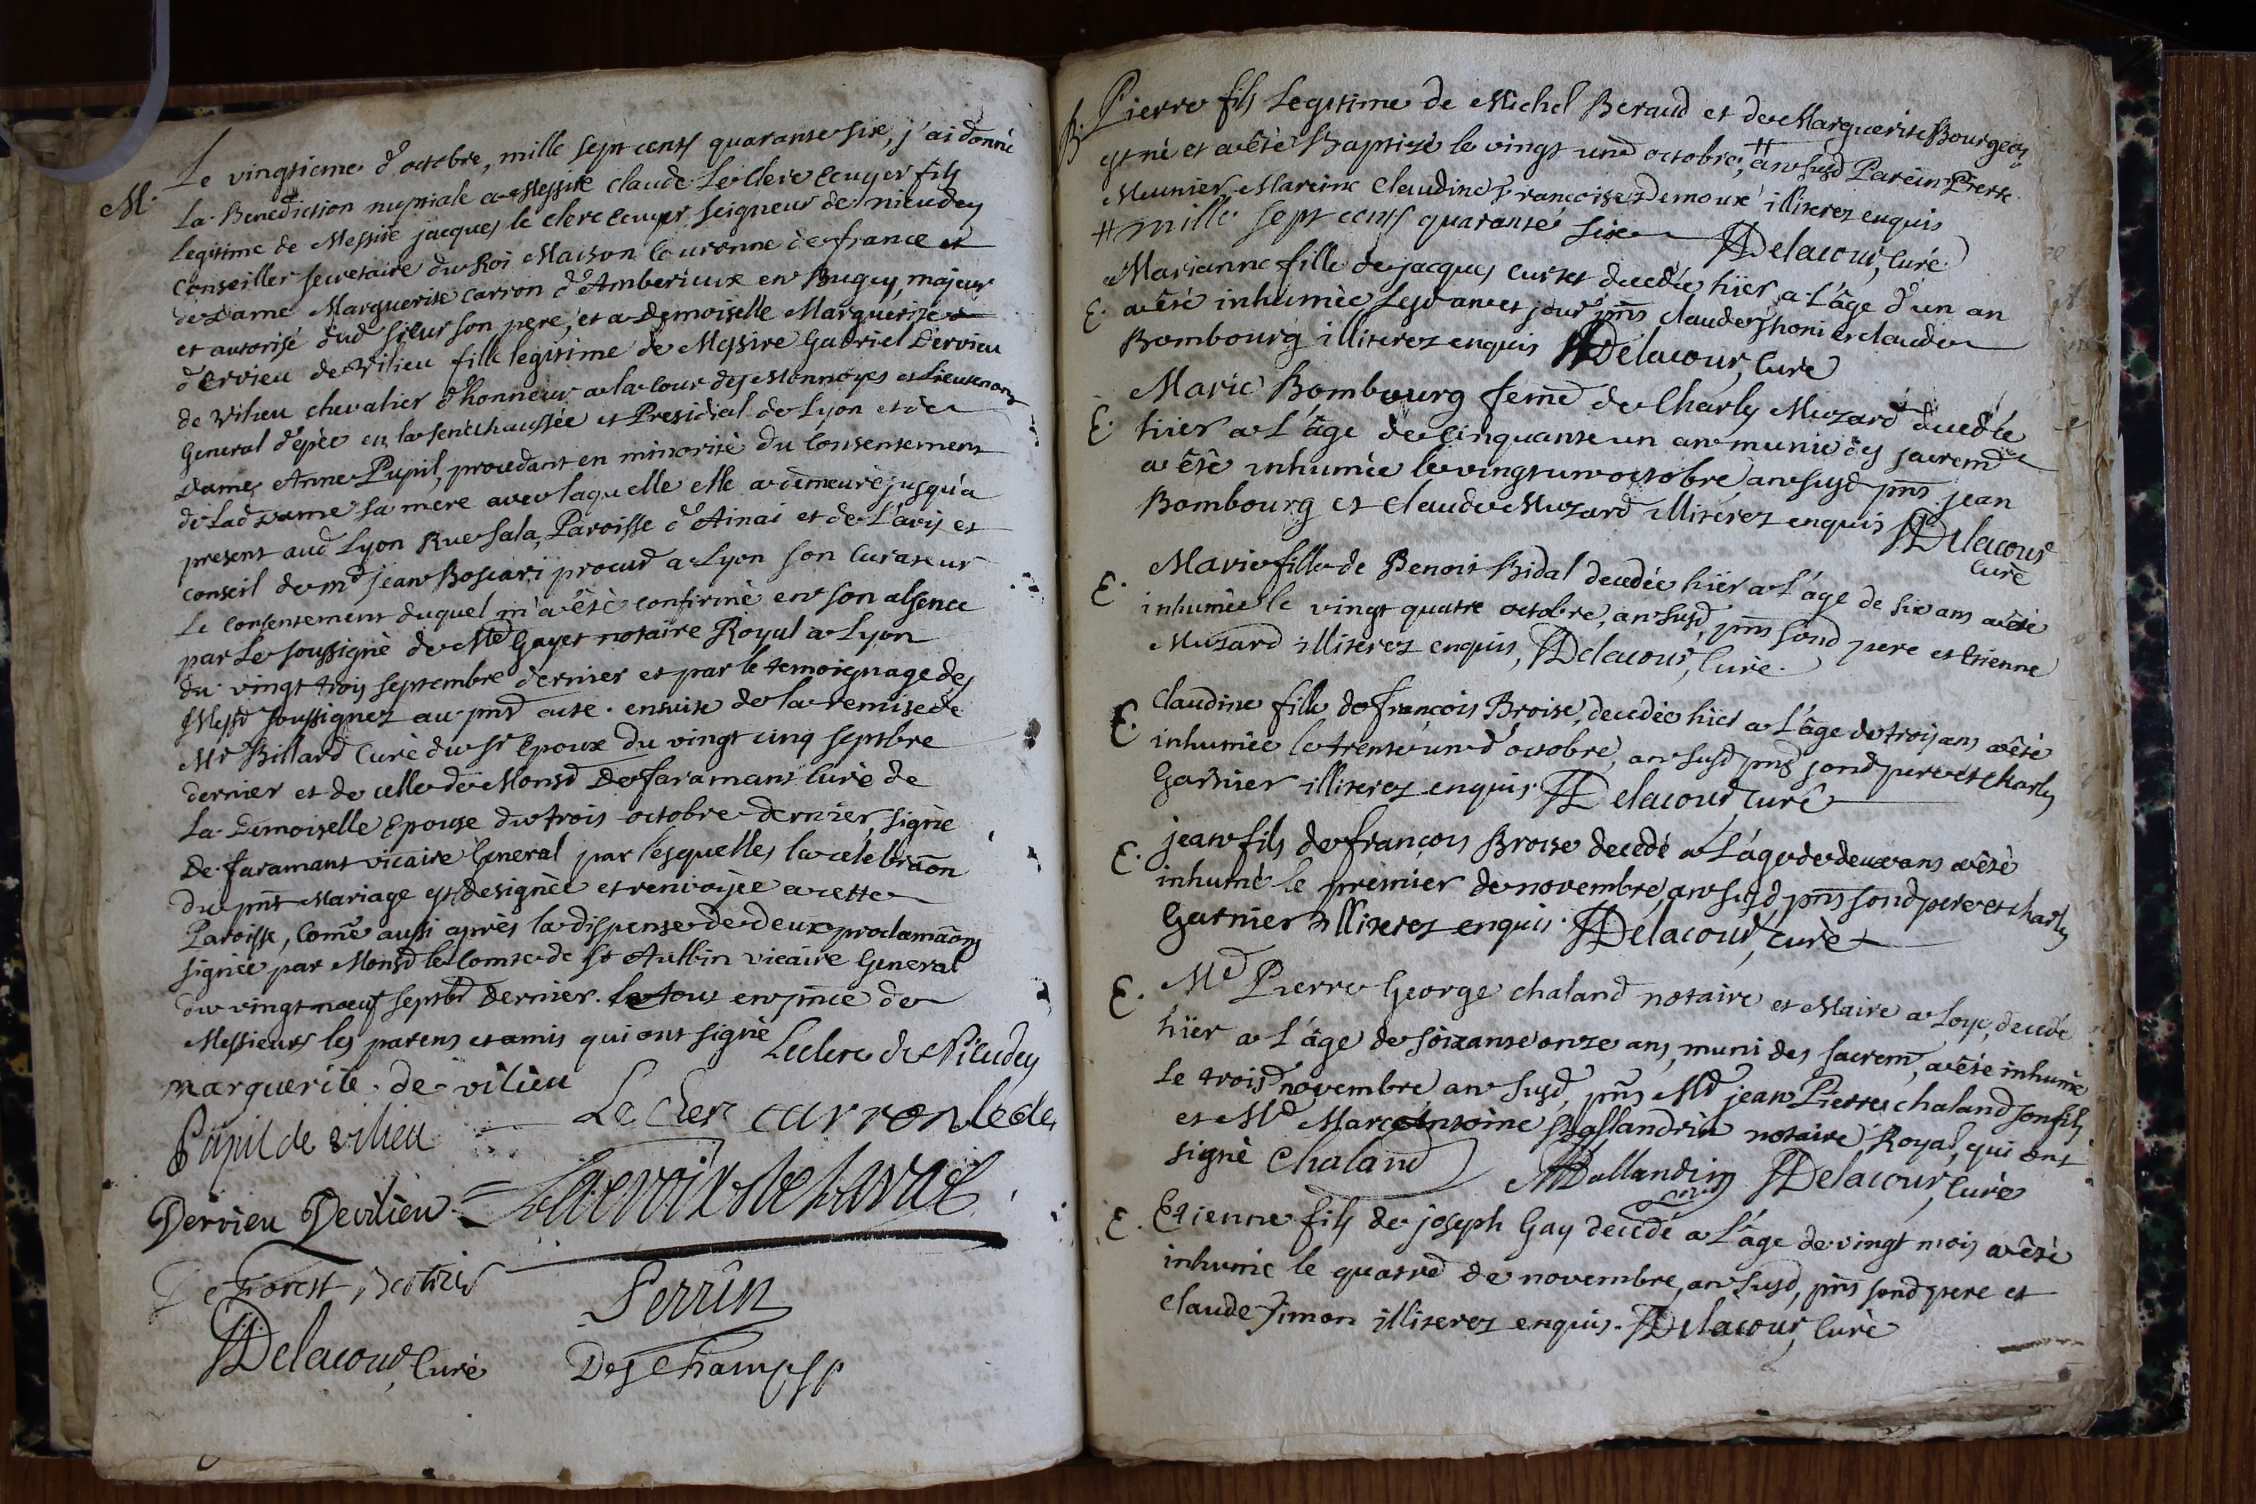 M. Le vingtieme d'octobre, mille sept cents quarante six, j'ai donné
La Benediction nuptiale a Messire claude Le Clerc Ecuyer fils
Legitime de Messire jacques le clerc Ecuyer Seigneur de nieudey
Conseiller secretaire du Roi Maison Couronne de france et
de Dame Marguerite Carron d'Amberieux en Bugey, majeur
et autorisé dud sieur son pere, et a Demoiselle Marguerite
d'Ervieu de Vilieu fille legitime de Messire Gabriel D'ervieu
de Vilieu chevalier d'honneur a la Cour des Monnoyes et Lieutenant
General d'épée en la senechaussée et Presidial de Lyon et de
Dame Anne Pupil, procedant en minorité du Consentement
de Lad Dame sa mere avec laquelle elle a demeuré jusqu'a
present aud Lyon Rue Sala, Paroisse d'Ainai et de L'avis et
conseil de md jean Boscari procur a Lyon son Curateur
Le consentement duquel m'a êté confirmé en son absence
par Le soussigné de Me Gayet notaire Royal a Lyon
du vingt trois septembre dernier et par le temoignage des
Messrs soussignez au pnt acte. ensuite de la remise de
Mr Billard Curé du sr Epoux du vingt cinq septbre
dernier et de celle de Monsr De faramant Curé de
La Demoiselle Epouse du trois octobre dernier, signée
De faramant vicaire General par lesquelles la celebraõn
du pnt Mariage est designée et renvoyée a cette
Paroisse, come aussi après la dispense de deux proclamaõns
signée par Monsr le Comte de St Aulbin vicaire General
du vingt noeuf septbr dernier. Le tout en pnce de
Messieurs les parens et amis qui ont signé Leclerc de Nieudey
marguerite de vilieu
Le Clerc carron le cle
Pupil de vilieu
Dervieu Devilieu Lacroix de Laval
De Forest
Perrin
Delacour, Curé Deschamps
B. Pierre fils Legitime de Michel Beraud et de Marguerite Bourgeois
est né et a êté Baptisé le vingt un d'octobre, # an susd Parein Pierre
Meunier Mareine Claudine Françoise Demoux illiterez enquis
# mille sept cents quarante six Delacour, Curé
E. Marianne fille de jacques Curtet decedée hïer a L'âge d'un an
a êté inhumée, lesd an et jour pñs claude Thoni et claude
Bombourg illiterez enquis Delacour, Curé
E. Marie Bombourg feme de Charly Muzard decedée
hïer a L'âge de Cinquante un an munie des sacremts
a êté inhumée le vingt un octobre an susd pñs jean
Bombourg et Claude Muzard illiterez enquis Delacour
Curé
E. Marie fille de Benoit Bidal decedée hïer a L'âge de six ans a êté
inhumée le vingt quatre octobre, an susd, pñs sond pere et Etienne
Muzard illiterez enquis, Delacour, Curé.
E. Claudine fille de françois Broise, decedée hïer a L'âge de trois ans a êté
inhumée le trente un d'octobre, an susd pñs sond pere et Charly
Garnier illiterez enquis. Delacour, Curé
E. jean fils de françois Broise decedé a L'âge de deux ans a êté
inhumé le premier de novembre, an susd, pñs sond pere et Charly
Garnier illiterez enquis. Delacour, Curé
E. Me Pierre George chaland notaire et Maire a Loye, decedé
hïer a L'âge de soixante onze ans, muni des sacremts, a êté inhumé
Le trois novembre, an susd, pñs Me jean Pierre chaland son fils
et Me Marc Antoine Ballandrin notaire Royal, qui ont
signé Chaland Ballandrin Delacour, Curé
E. Etienne fils de joseph Gay decedé a L'âge de vingt mois a êté
inhumé le quatre de novembre, an susd, pñs sond pere et
Claude Simon illiterez enquis. Delacour, Curé